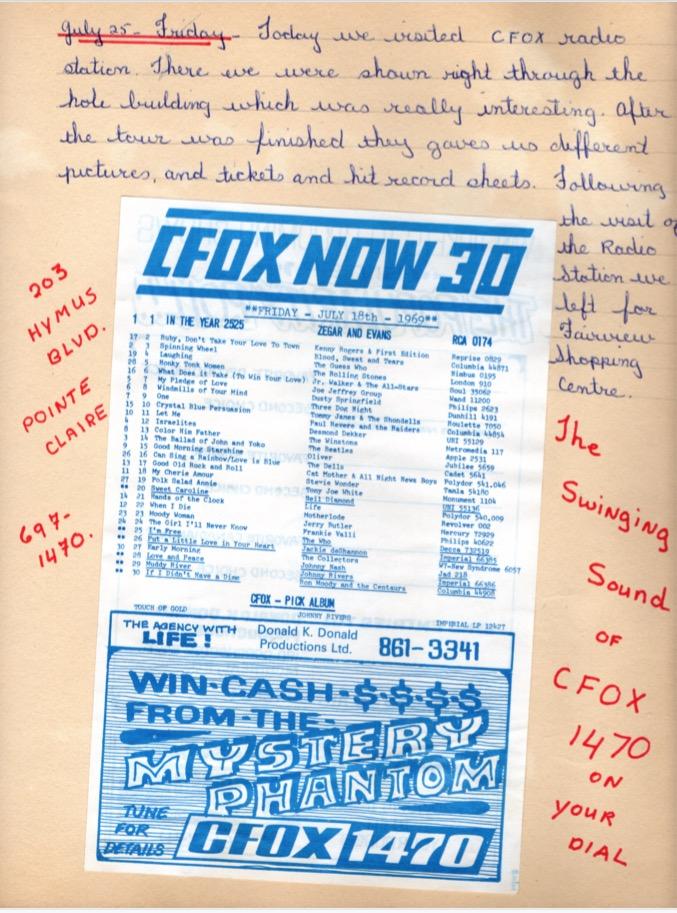 July 25 - Friday - Today we visited CFOX radio
station. There we were shown right through the
hole building which was really interesting. After
the tour was finished they gaves us different
pictures, and tickets and hit record sheets. Following
the visit of
the Radio
Station we
left for
Fairview
Shopping
Centre.
203
HYMUS
BLVD.
POINTE
CLAIRE
697-
1470.
CFOX NOW 30
**FRIDAY - JULY 18th - 1969**
1 1 IN THE YEAR 2525 ZEGAR AND EVANS RCA 0174
17 2 Ruby, Don't Take Your Love To Town Kenny Rogers & First Edition Reprise 0829
2 3 Spinning Wheel Blood, Sweat and Tears Columbia 44871
19 4 Laughing The Guess Who Nimbus 0195
20 5 Honky Tonk Women The Rolling Stones London 910
16 6 What Does it Take (To Win Your Love) Jr. Walker & The All-Stars Soul 35062
5 7 My Pledge of Love Joe Jeffrey Group Wand 11200
6 8 Windmills of Your Mind Dusty Springfield Philips 2623
7 9 One Three Dog Night Dunhill 4191
15 10 Crystal Blue Persuasion Tommy James & The Shondells Roulette 7050
10 11 Let Me Paul Revere and the Raiders Columbia 44854
4 12 Israelites Desmond Dekker UNI 55129
8 13 Color Him Father The Winstons Metromedia 117
3 14 The Ballad of John and Yoko The Beatles Apple 2531
9 15 Good Morning Starshine Oliver Jubilee 5659
26 16 Can Sing a Rainbow/Love is Blue The Dells Cadet 5641
13 17 Good Old Rock and Roll Cat Mother & All Night News Boys Polydor 541,046
11 18 My Cherie Amour Stevie Wonder Tamla 54180
27 19 Polk Salad Annie Tony Joe White Monument 1104
** 20 Sweet Caroline Neil Diamond UNI 55136
14 21 Hands of the Clock Life Polydor 540,009
12 22 When I Die Motherlode Revolver 002
23 23 Moody Woman Jerry Butler Mercury 72929
24 24 The Girl I'll Never Know Frankie Valli Philips 40622
** 25 I'm Free The Who Decca 732519
** 26 Put a Little Love in Your Heart Jackie deShannon Imperial 66385
30 27 Early Morning The Collectors W7-New Syndrome 6057
** 28 Love and Peace Johnny Nash Jad 218
** 29 Muddy River Johnny Rivers Imperial 66386
** 30 If I Didn't Have a Dime Ron Moody and the Centaurs Columbia 44908
CFOX - PICK ALBUM
TOUCH OF GOLD JOHNNY RIVERS IMPERIAL LP 12427
THE AGENCY WITH
LIFE!
Donald K. Donald
Productions Ltd.
861-3341
WIN-CASH-$-$-$-$
FROM-THE-
MYSTERY
PHANTOM
TUNE
FOR
DETAILS
CFOX 1470
The
Swinging
Sound
OF
CFOX
1470
ON
YOUR
DIAL